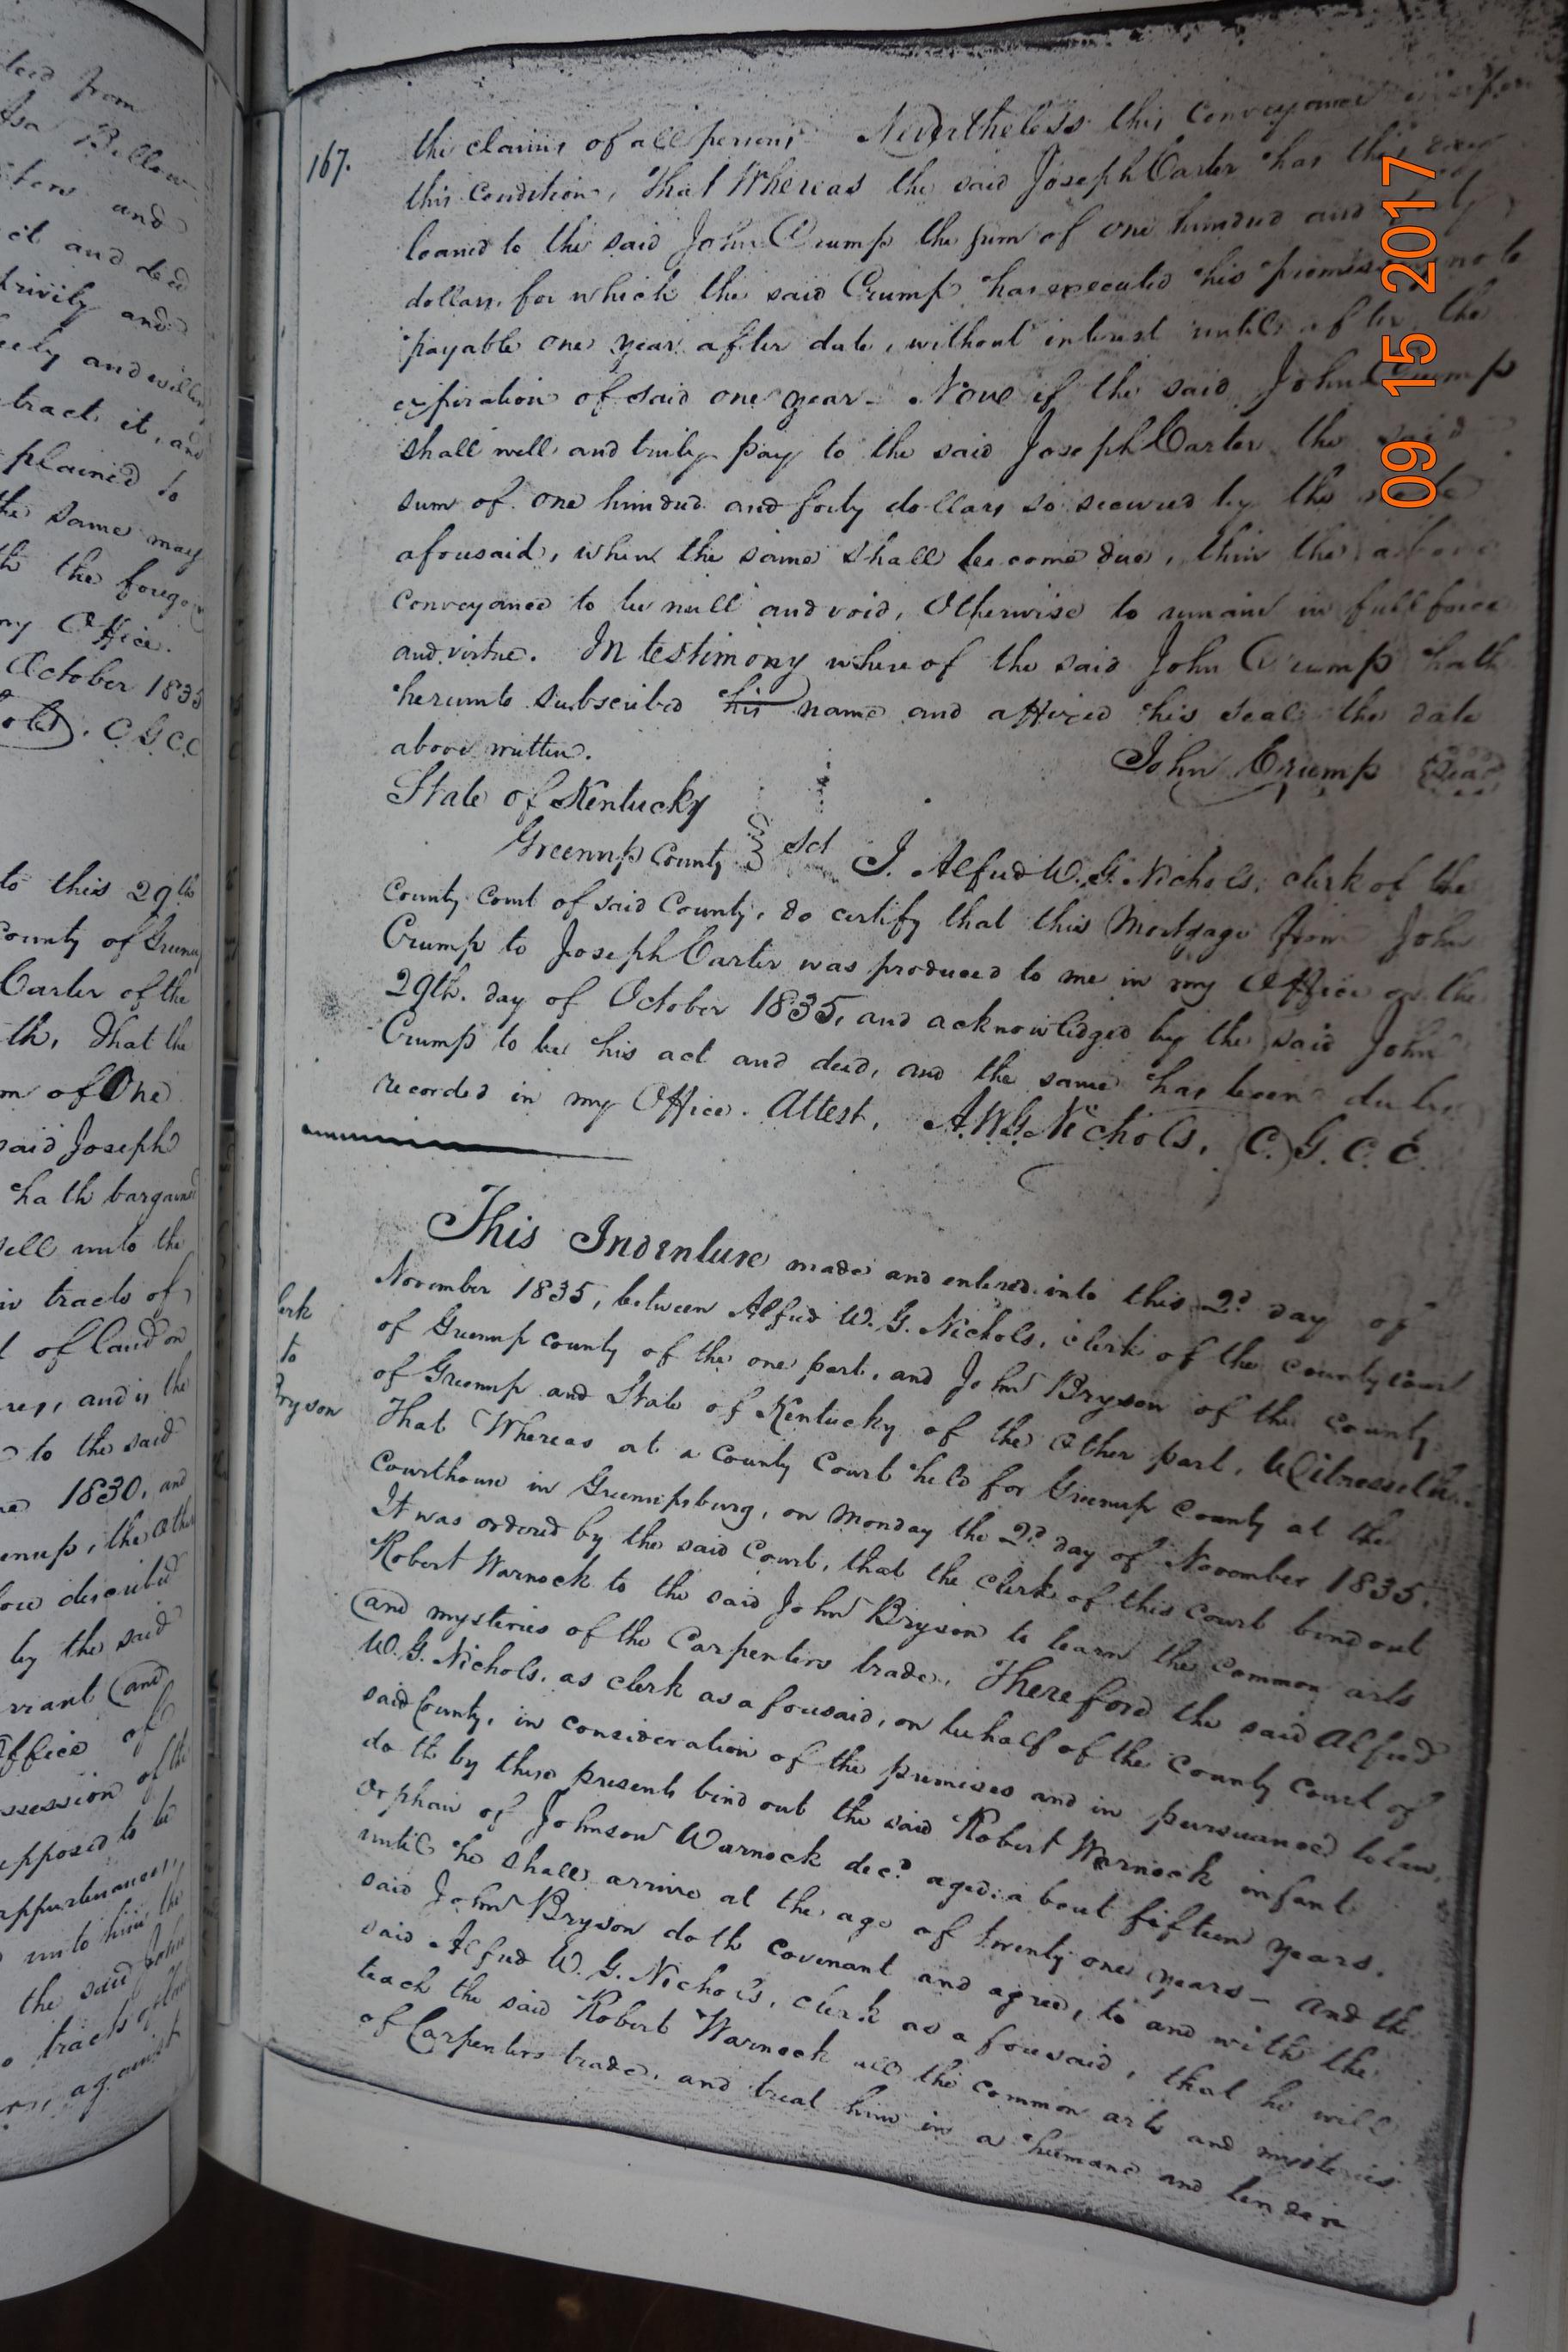 deed from
Asa Bellow
and
ct and deed
privily and
eely and willin
tract it, and
plained to
the same may
th the forego
my Office.
October 1835
C.G.C.C
to this 29th
County of Greenu
Carter of the
th, That the
m of One
said Joseph
hath bargained
sell unto the
tracts of
t of land on
res, and is the
to the said
1830, and
enup, the other
described
by the said
rriant and
Office of
ssession of the
supposed to be
appurtenances,
unto him, the
the said John
tracts of land
against
167.
the claims of all persons Nevertheless this conveyance is upon
this condition, That Whereas the said Joseph Carter has this
loaned to the said John Crump the sum of one hundred and
dollars, for which the said Crump has executed his promissory note
payable one year after date, without interest until after the
expiration of said one year - Now if the said John Crump
shall well and truly pay to the said Joseph Carter the said
sum of one hundred and forty dollars so secured by the note
aforesaid, when the same shall become due, then the above
conveyance to be null and void, Otherwise to remain in full force
and virtue. In testimony whereof the said John Crump hath
hereunto subscribed his name and affixed his seal the date
above written.
John Crump Seal
State of Kentucky
Greenup County Sct I. Alfred W. G. Nichols, clerk of the
County Court of said County, do certify that this Mortgage from John
Crump to Joseph Carter was produced to me in my Office on the
29th. day of October 1835, and acknowledged by the said John
Crump to be his act and deed, and the same has been duly
recorded in my Office. Attest, A.W.G. Nichols, C. G. C. C.
This Indenture made and entered into this 2d day of
November 1835, between Alfred W. G. Nichols, clerk of the county court
of Greenup county of the one part, and John Bryson of the county
of Greenup and State of Kentucky of the other part, Witnesseth.
That Whereas at a county Court held for Greenup County at the
Courthouse in Greenupsburg, on Monday the 2d day of November 1835.
It was ordered by the said Court, that the clerk of this Court bind out
Robert Warnock to the said John Bryson to learn the common arts
and mysteries of the Carpenters trade. Therefore the said Alfred
W. G. Nichols, as clerk as aforesaid, on behalf of the County Court of
said County, in consideration of the premises and in pursuance to law,
doth by these presents bind out the said Robert Warnock infant
orphan of Johnson Warnock decd aged about fifteen years.
until he shall arrive at the age of twenty one years - And the
said John Bryson doth covenant and agree, to and with the
said Alfred W. G. Nichols, clerk as aforesaid, that he will
teach the said Robert Warnock all the common arts and mysteries
of Carpenters trade, and treat him in a humane and tender
lerk
to
Bryson
09 15 2017